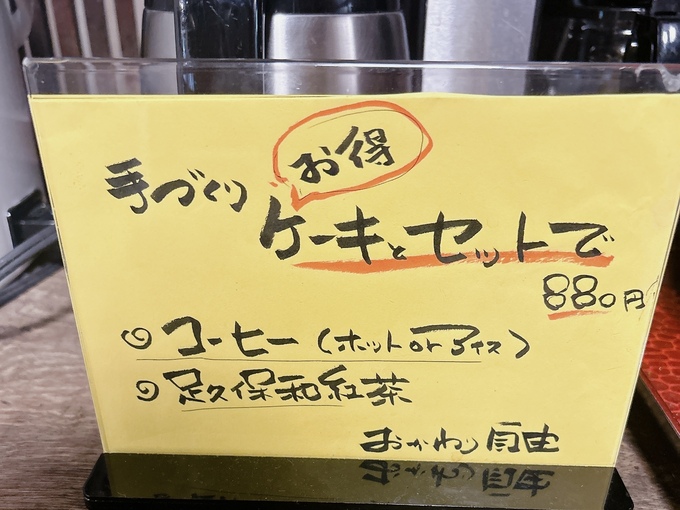 お得
手づくり
ケーキとセットで
880円
コーヒー(ホット or アイス)
足久保和紅茶
おかわり自由